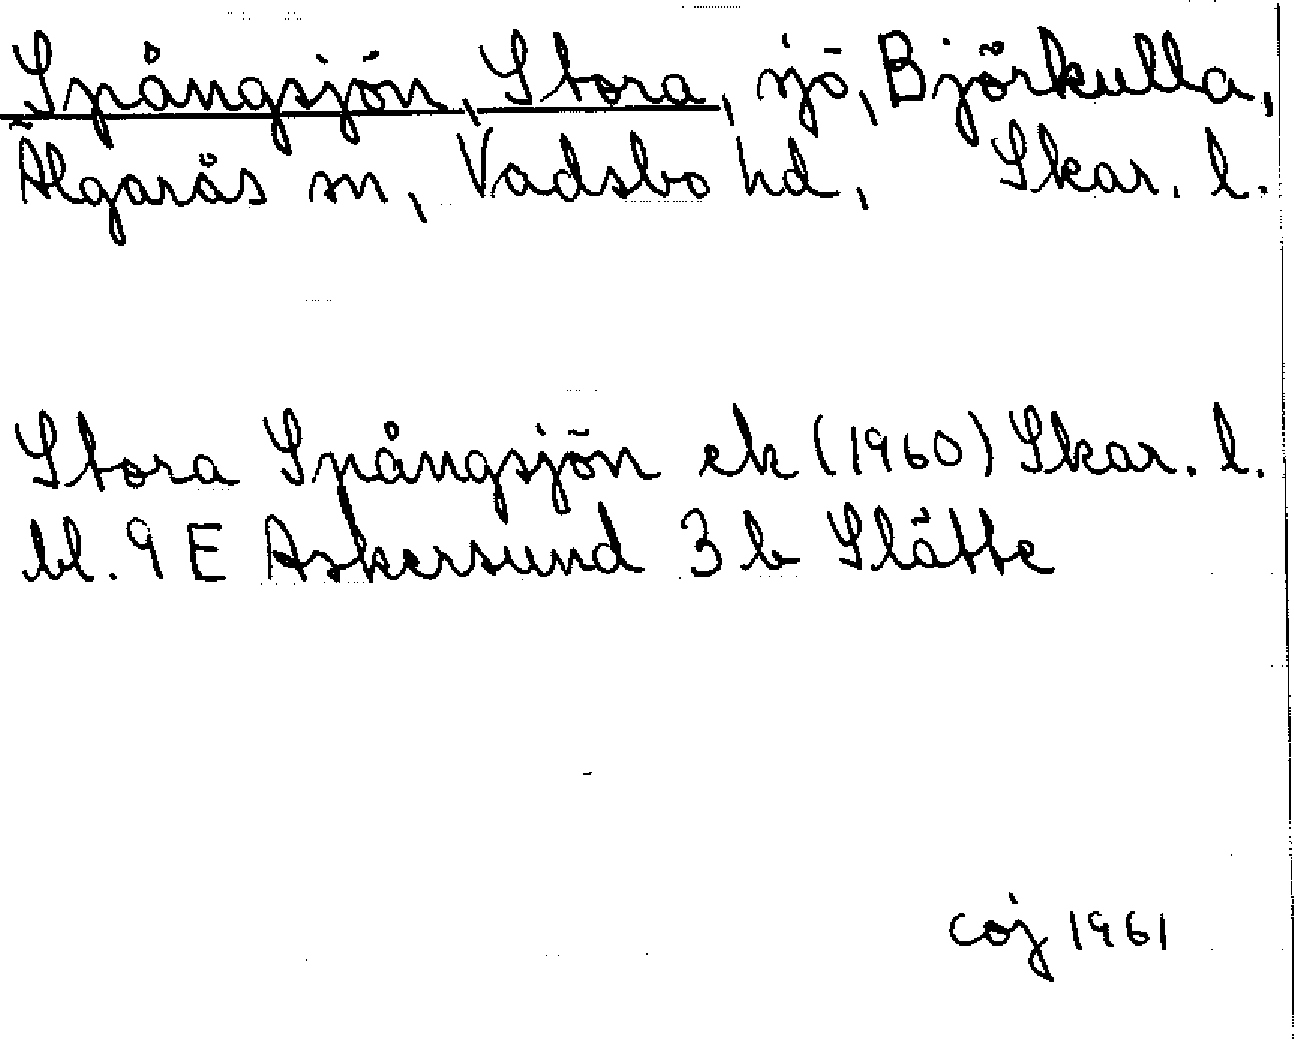 Spångsjön, Stora, sjö, Björkulla,
Älgarås sn, Vadsbo hd, Skar. l.
Stora Spångsjön ek (1960) Skar. l.
bl. 9 E Askersund 3 b Slätte
coj 1961